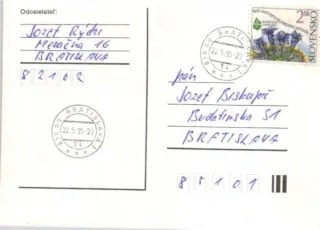 Odosielateľ:
Jozef Rýdzi
Mesačna 16
BRATISLAVA
82102
BRATISLAVA
22.5.95-22
BRATISLAVA
22.5.95-22
2 Sk
SLOVENSKO
pán
Jozef Biskupič
Budatínska 51
BRATISLAVA
85101